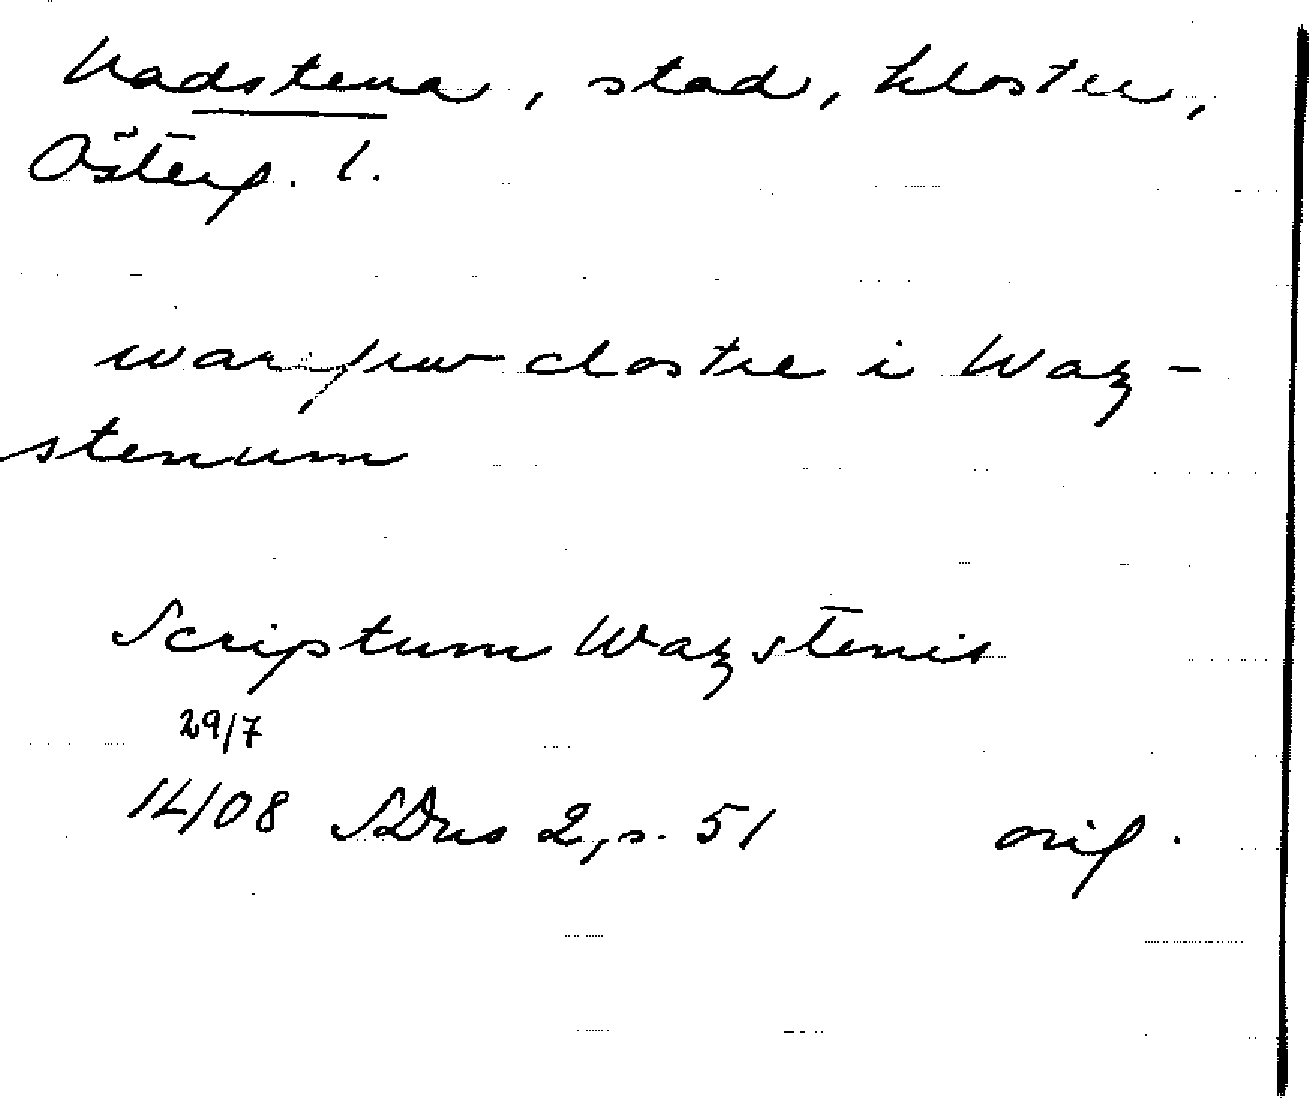 Vadstena, stad, kloster,
Österg. l.
warfrw clostre i Waz-
stenum
Scriptum Wazstenis
29/7
14/08 SDns 2, s. 51 orig.